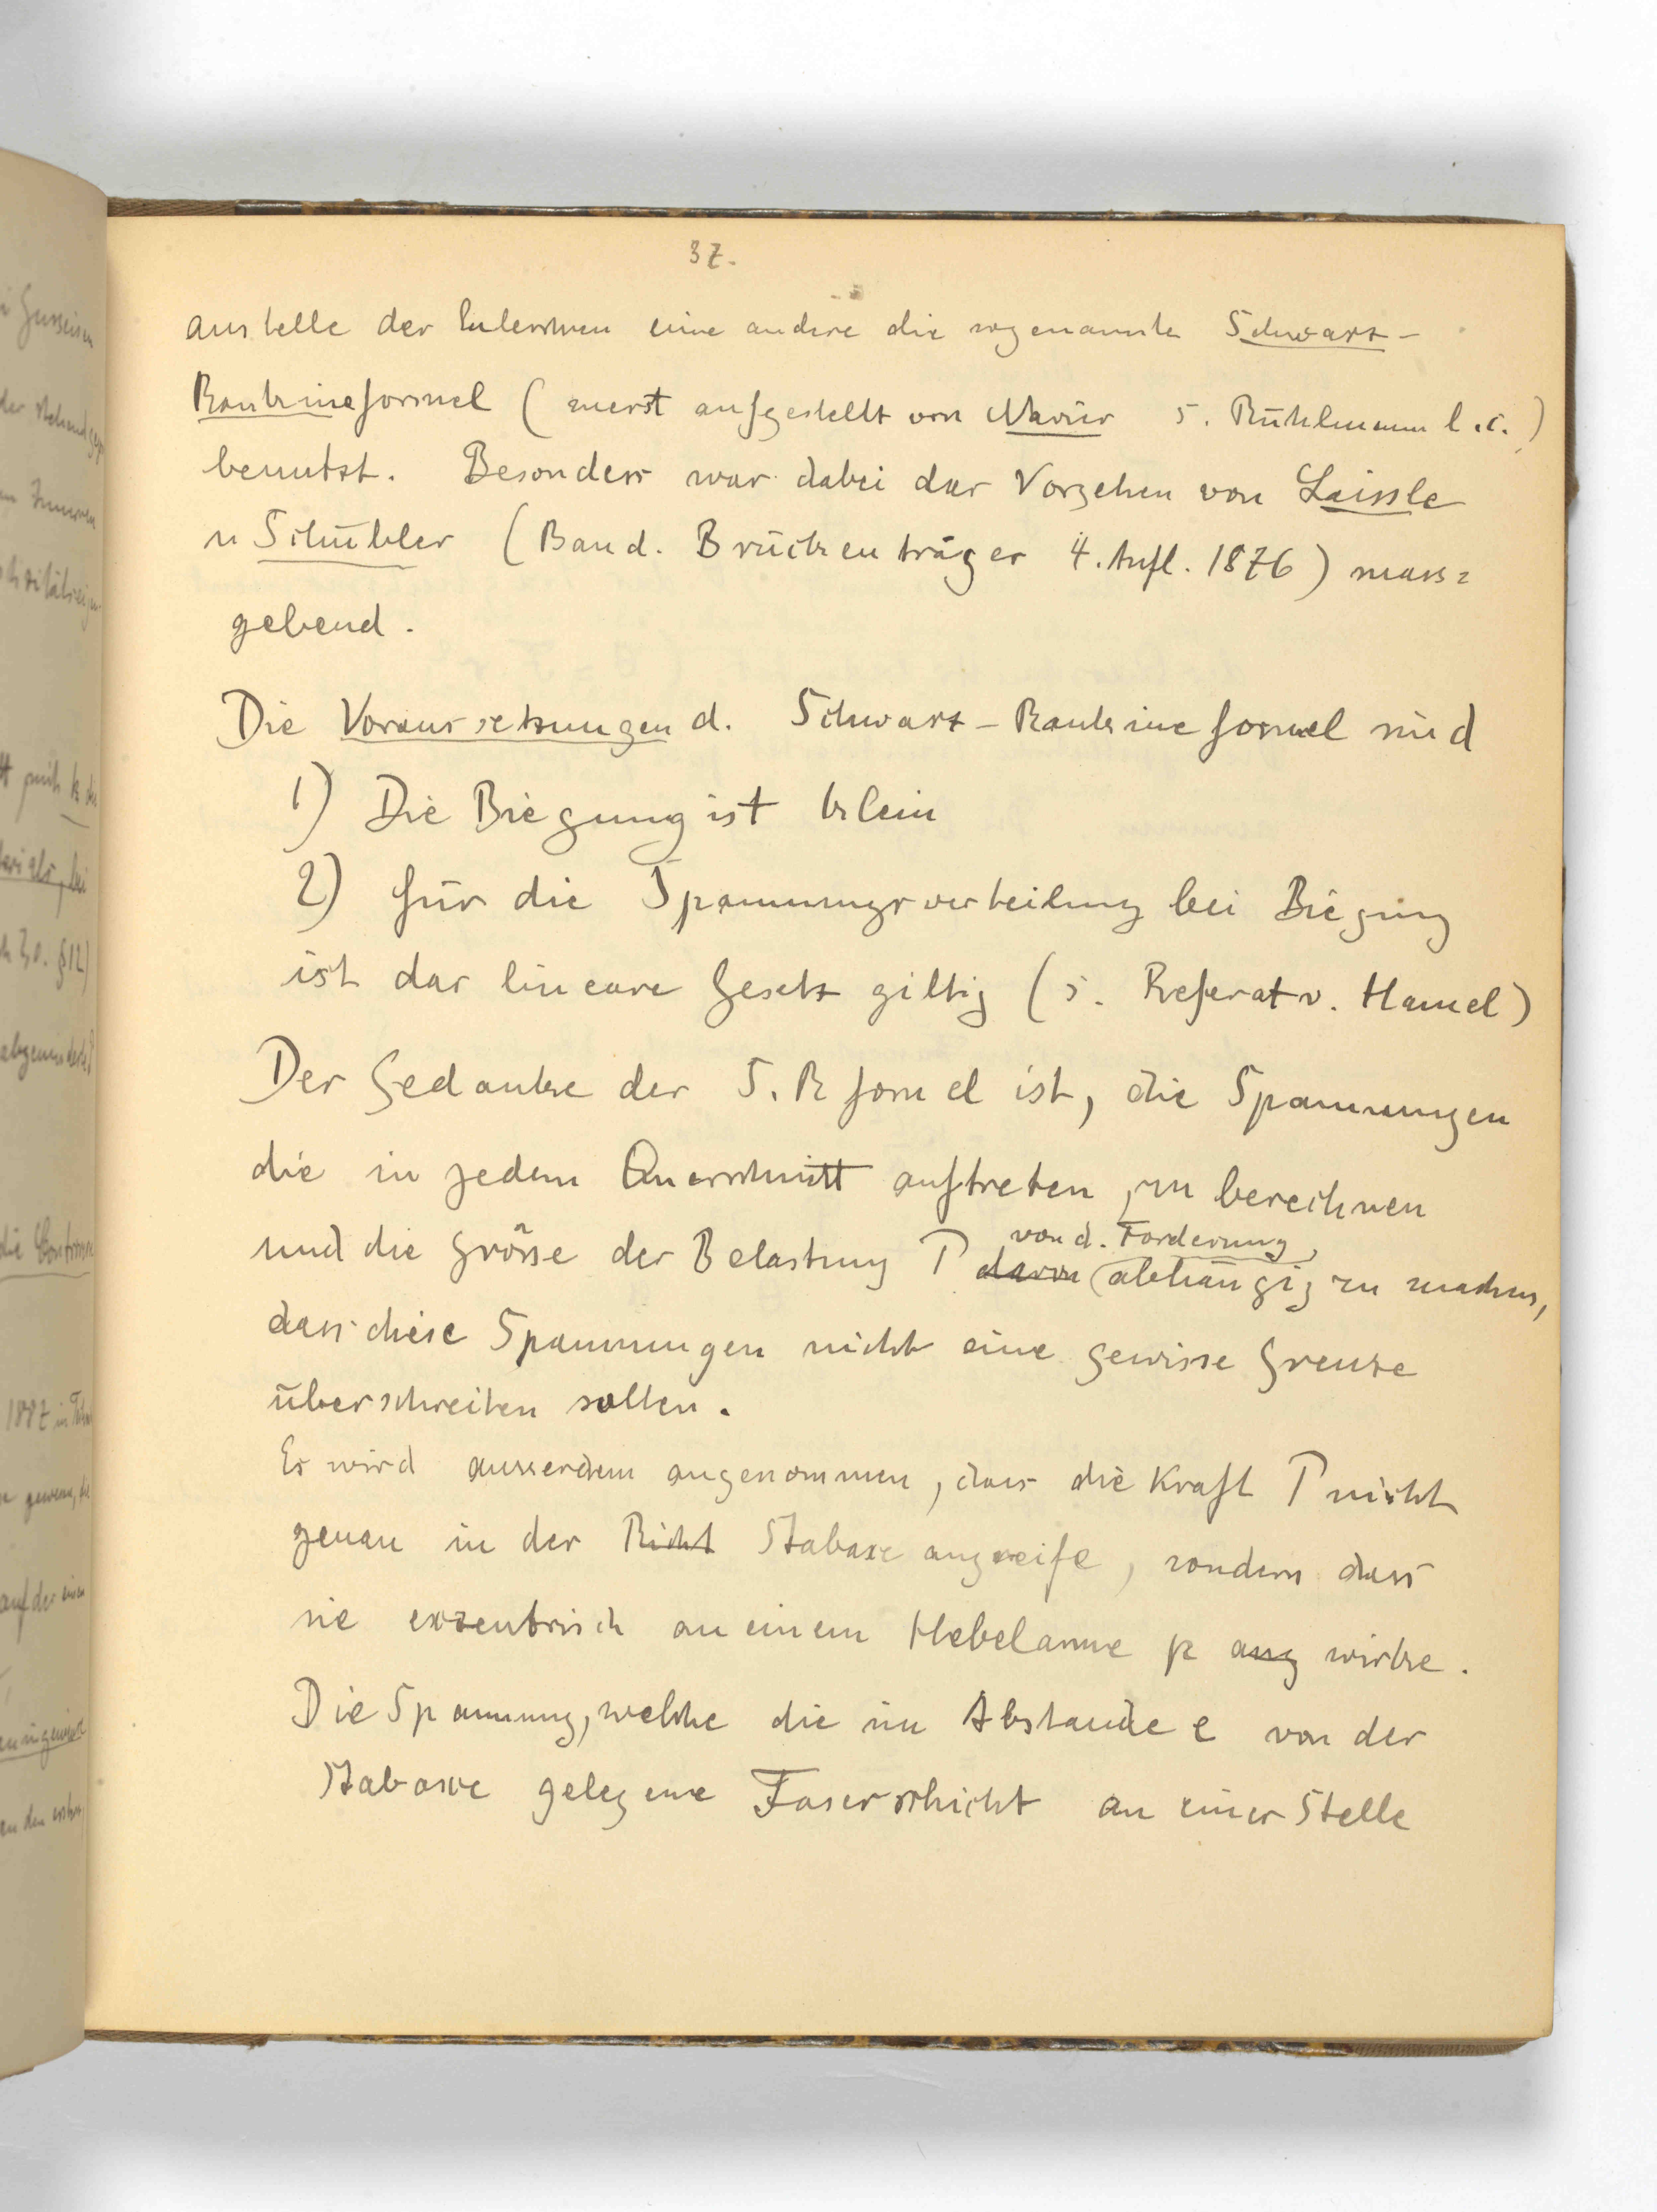 37.
anstelle der Eulerschen eine andere die sogenannte Schwarz-
Rankineformel (zuerst aufgestellt von Navier s. Rühlmann l.c.)
benutzt. Besonders war dabei das Vorgehen von Laissle
u Schübler (Bau d. Brückenträger 4. Aufl. 1876) mass=
gebend.
Die Voraussetzungen d. Schwarz-Rankineformel sind
1) Die Biegung ist klein
2) für die Spannungsverteilung bei Biegung
ist das lineare Gesetz giltig (s. Referat v. Hamel)
Der Gedanke der S.R formel ist, die Spannungen
die in jedem Querschnitt auftreten, zu berechnen
von d. Forderung
und die Grösse der Belastung P davon abhängig zu machen,
dass diese Spannungen nicht eine gewisse Grenze
überschreiten sollen.
Es wird ausserdem angenommen, dass die Kraft P nicht
genau in der Richt Stabaxe angreife, sondern dass
sie exzentrisch an einem Hebelarme p ang wirke.
Die Spannung, welche die im Abstande e von der
Stabaxe gelegene Faserschicht an einer Stelle
i Gusseisen
der stehend
m Inneren
1887 in
auf der einen
an den ersten